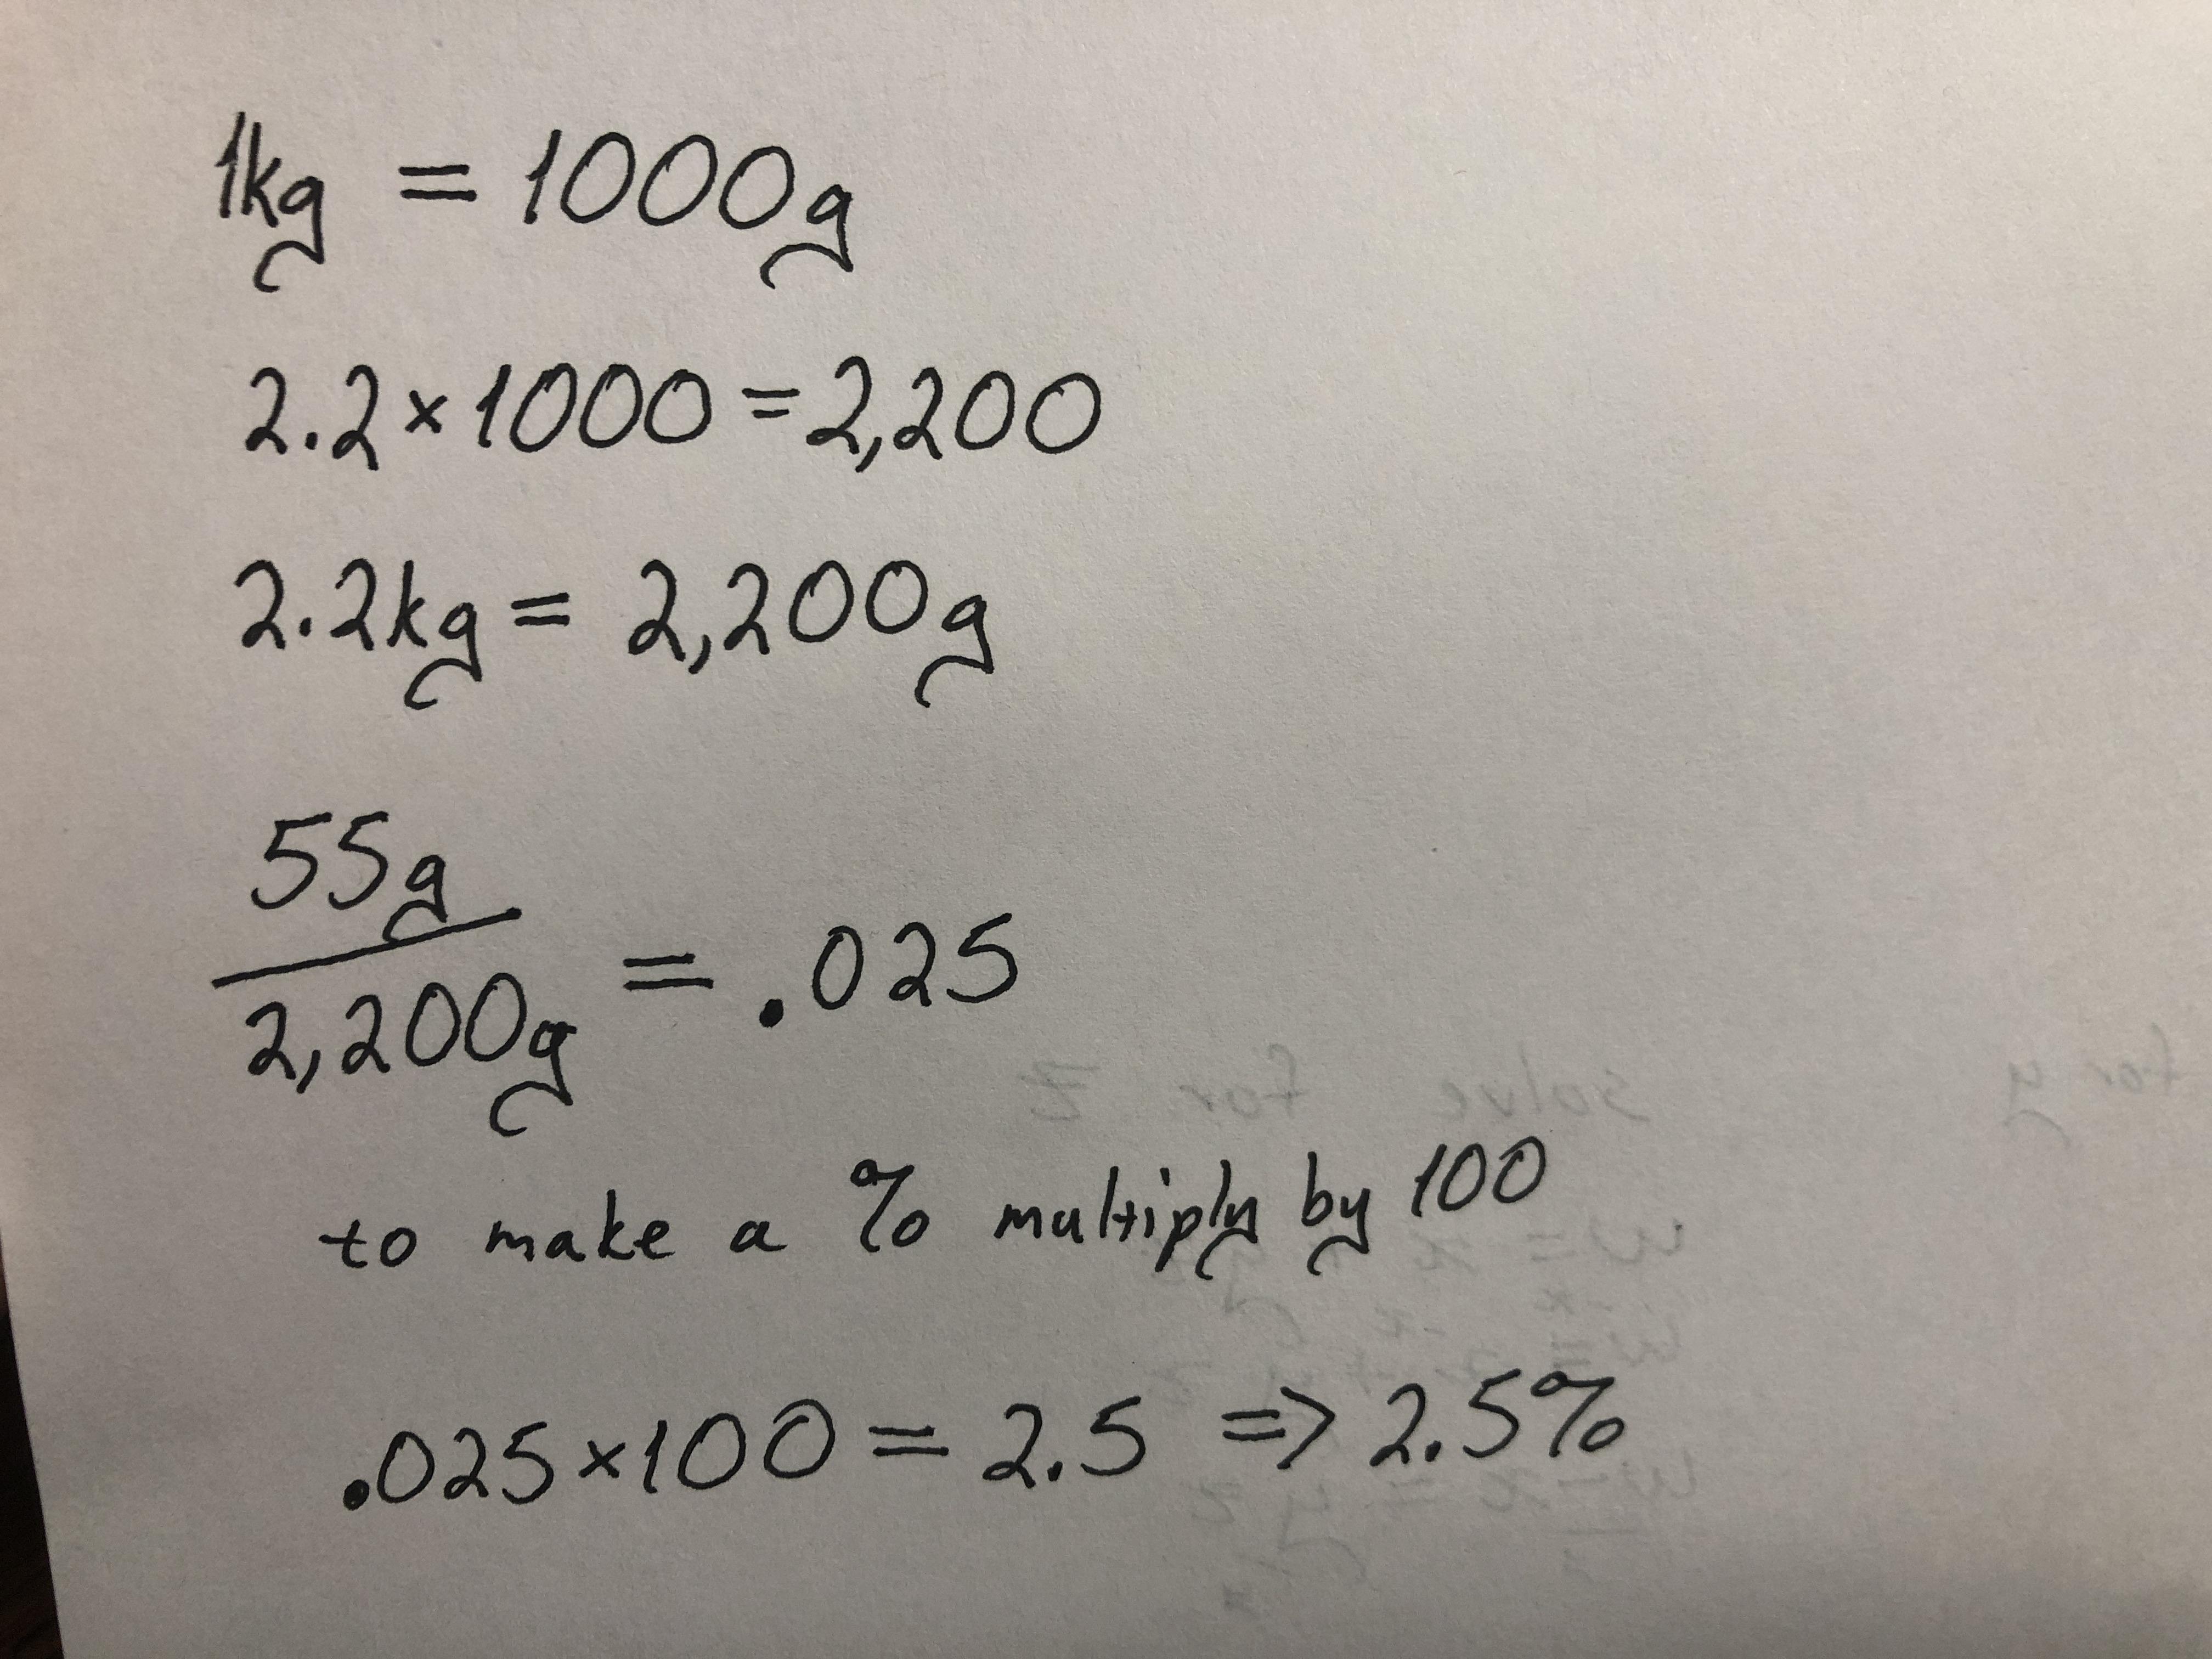 1kg = 1000g
2.2×1000=2,200
2.2kg = 2,200g
55g
2,200g
= .025
to make a % multiply by 100
.025×100 = 2.5 => 2.5%
for y
solve for z